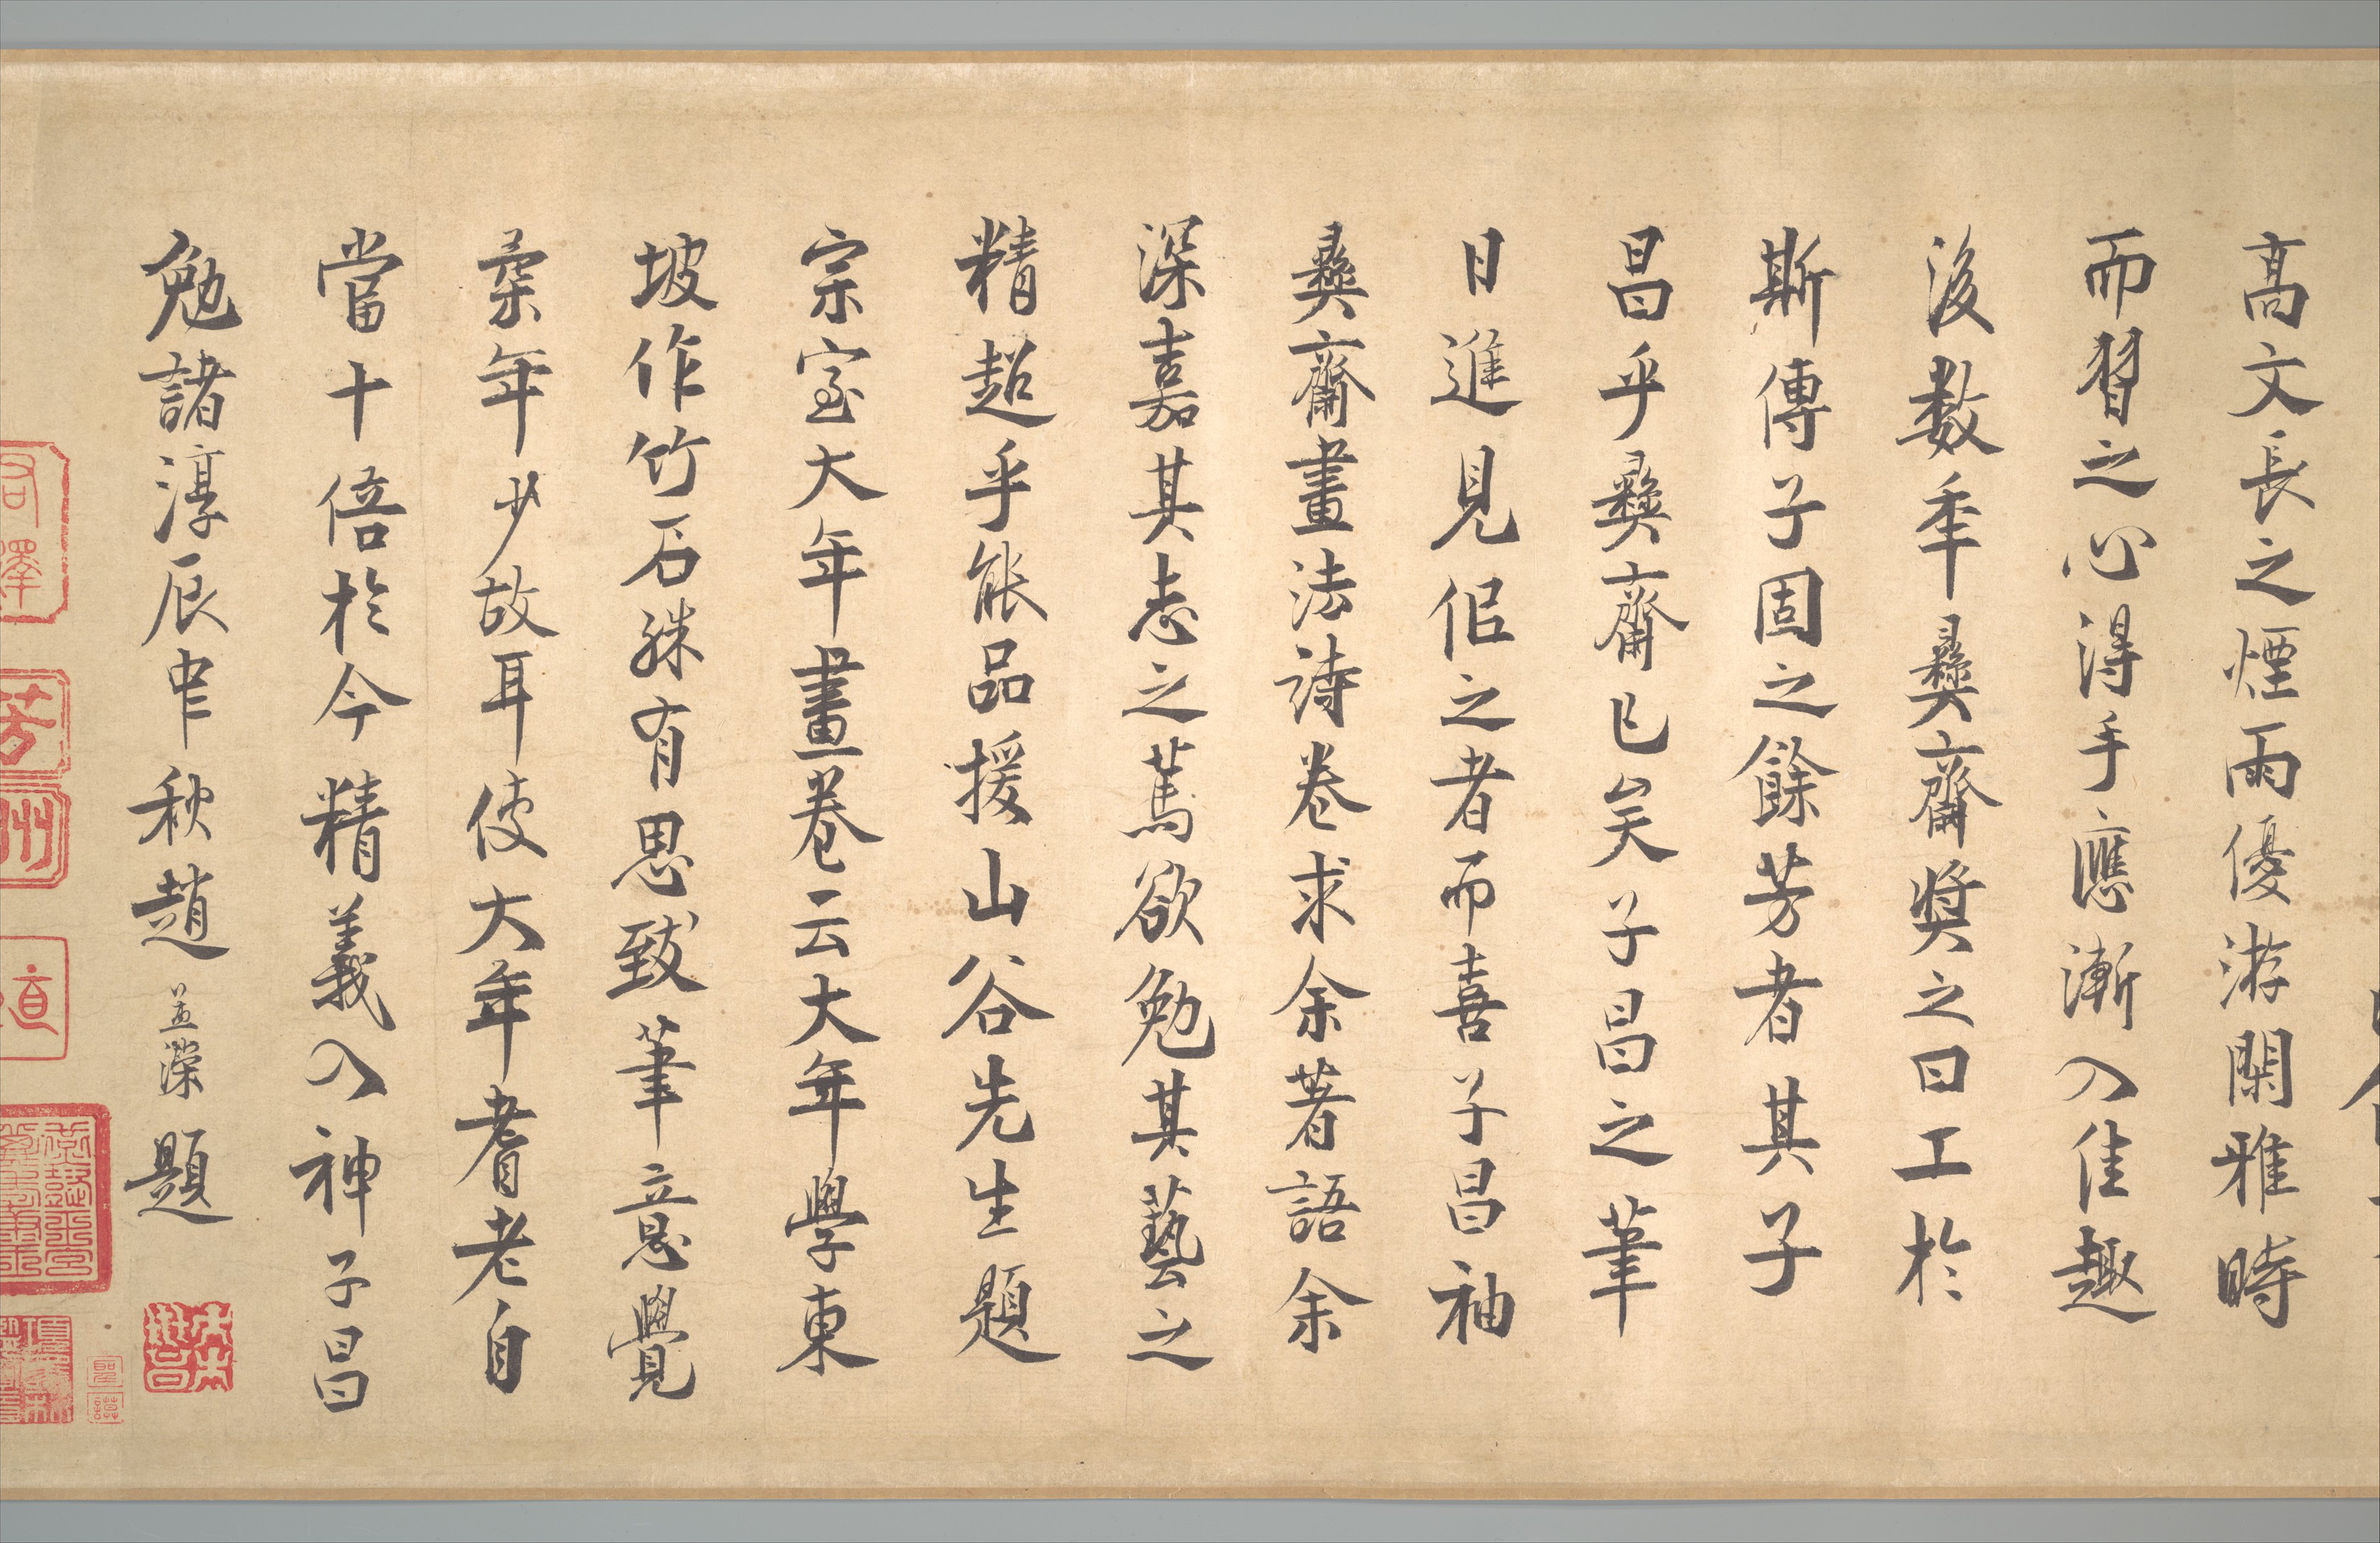 高文長之煙雨優游閑雅時
而習之心得手應漸入佳趣
後數年彝齋奬之曰工於
斯傳子固之餘芳者其子
昌乎彝齋已矣子昌之筆
日進見佀之者而喜子昌袖
彝齋畫法詩卷求余著語余
深嘉其志之篤欲勉其藝之
精超乎能品援山谷先生題
宗室大年畫卷云大年學東
坡作竹石殊有思致筆意覺
柔年少故耳使大年耆老自
當十倍於今精義入神子昌
勉諸淳辰中秋趙孟濚題